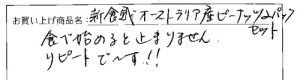 お買い上げ商品名：新食感オーストラリア産ピーナッツ2パック
セット
食べ始めると止まりません
リピートで〜す!!